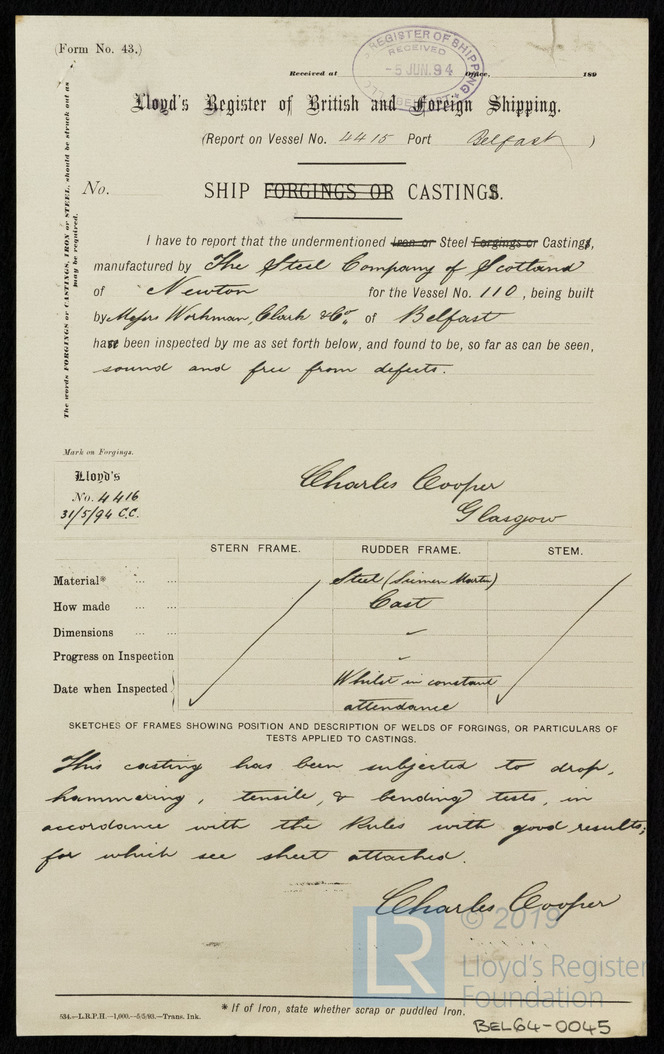 (Form No. 43.)
REGISTER OF SHIPPING
RECEIVED
-5 JUN.94
BELFAST
Received at Office, 189
Lloyd's Register of British and Foreign Shipping.
(Report on Vessel No. 4415 Port Belfast )
The words FORGINGS or CASTINGS, IRON or STEEL, should be struck out as
may be required.
No. SHIP FORGINGS OR CASTINGS.
I have to report that the undermentioned Iron or Steel Forgings or Castings,
manufactured by The Steel Company of Scotland
of Newton for the Vessel No. 110, being built
by Messrs Workman, Clark & Co. of Belfast
has been inspected by me as set forth below, and found to be, so far as can be seen,
sound and free from defects.
Mark on Forgings.
Lloyd's
No. 4416
31/5/94 C.C.
Charles Cooper
Glasgow
STERN FRAME. RUDDER FRAME. STEM.
Material* ... ... Steel (Siemen Martin)
How made ... ... Cast
Dimensions ... ...
Progress on Inspection
Date when Inspected Whilst in constant
attendance
SKETCHES OF FRAMES SHOWING POSITION AND DESCRIPTION OF WELDS OF FORGINGS, OR PARTICULARS OF
TESTS APPLIED TO CASTINGS.
This casting has been subjected to drop,
hammering, tensile, & bending tests, in
accordance with the Rules with good results;
for which see sheet attached.
Charles Cooper
© 2019
LR
Lloyd's Register
Foundation
* If of Iron, state whether scrap or puddled Iron.
534.—L.R.P.H.—1,000.—5/5/93.—Trans. Ink.
BEL64-0045